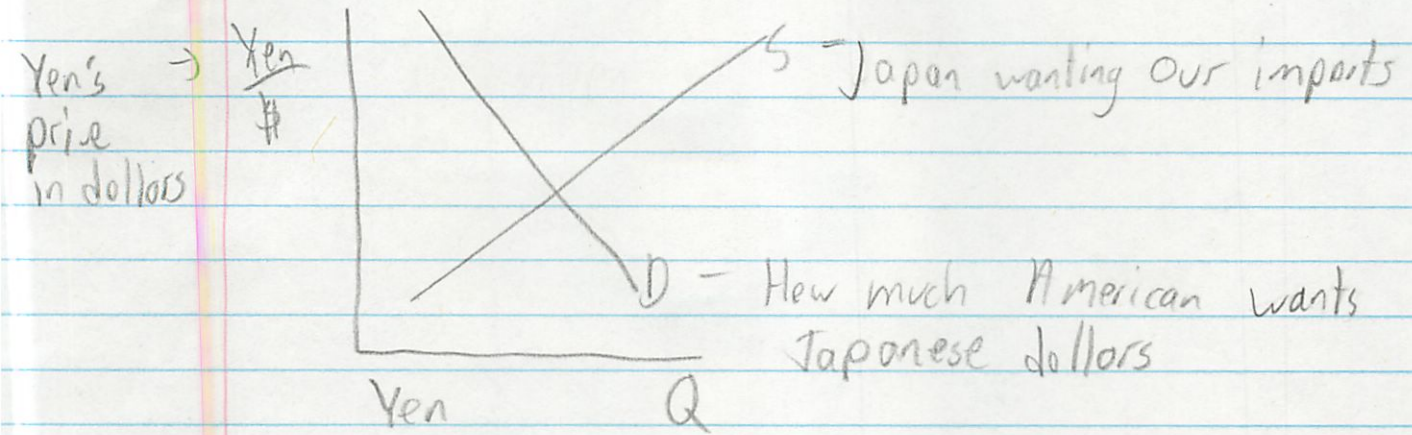 Yen's
price
in dollars
→ Yen
$
S - Japan wanting our imports
D - How much American wants
Japanese dollars
Yen Q